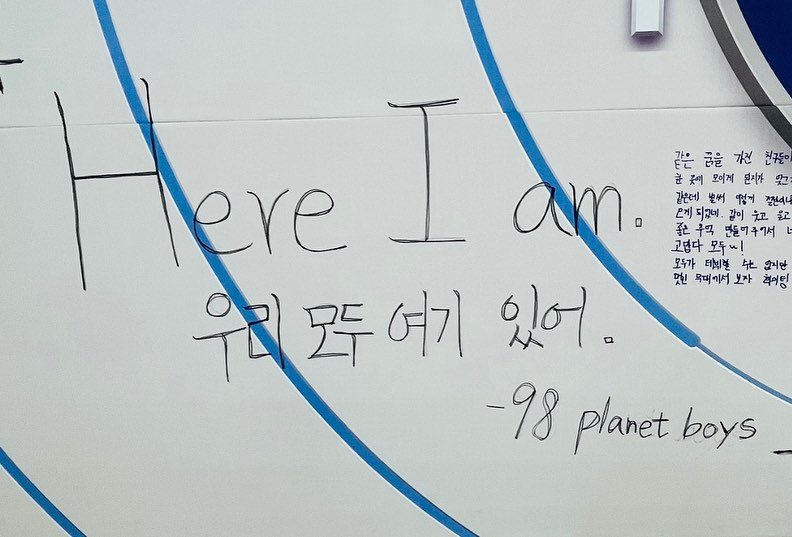 Here I am.
우리 모두 여기 있어.
-98 planet boys
같은 꿈을 가진 친구들이
한 곳에 모이게 된지가
같은데 벌써 이렇게
되었네. 같이 웃고 울고
좋은 추억 만들어주어서
고맙다 모두~!
모두가 데뷔할 수는 없지만
멋진 무대에서 보자 화이팅